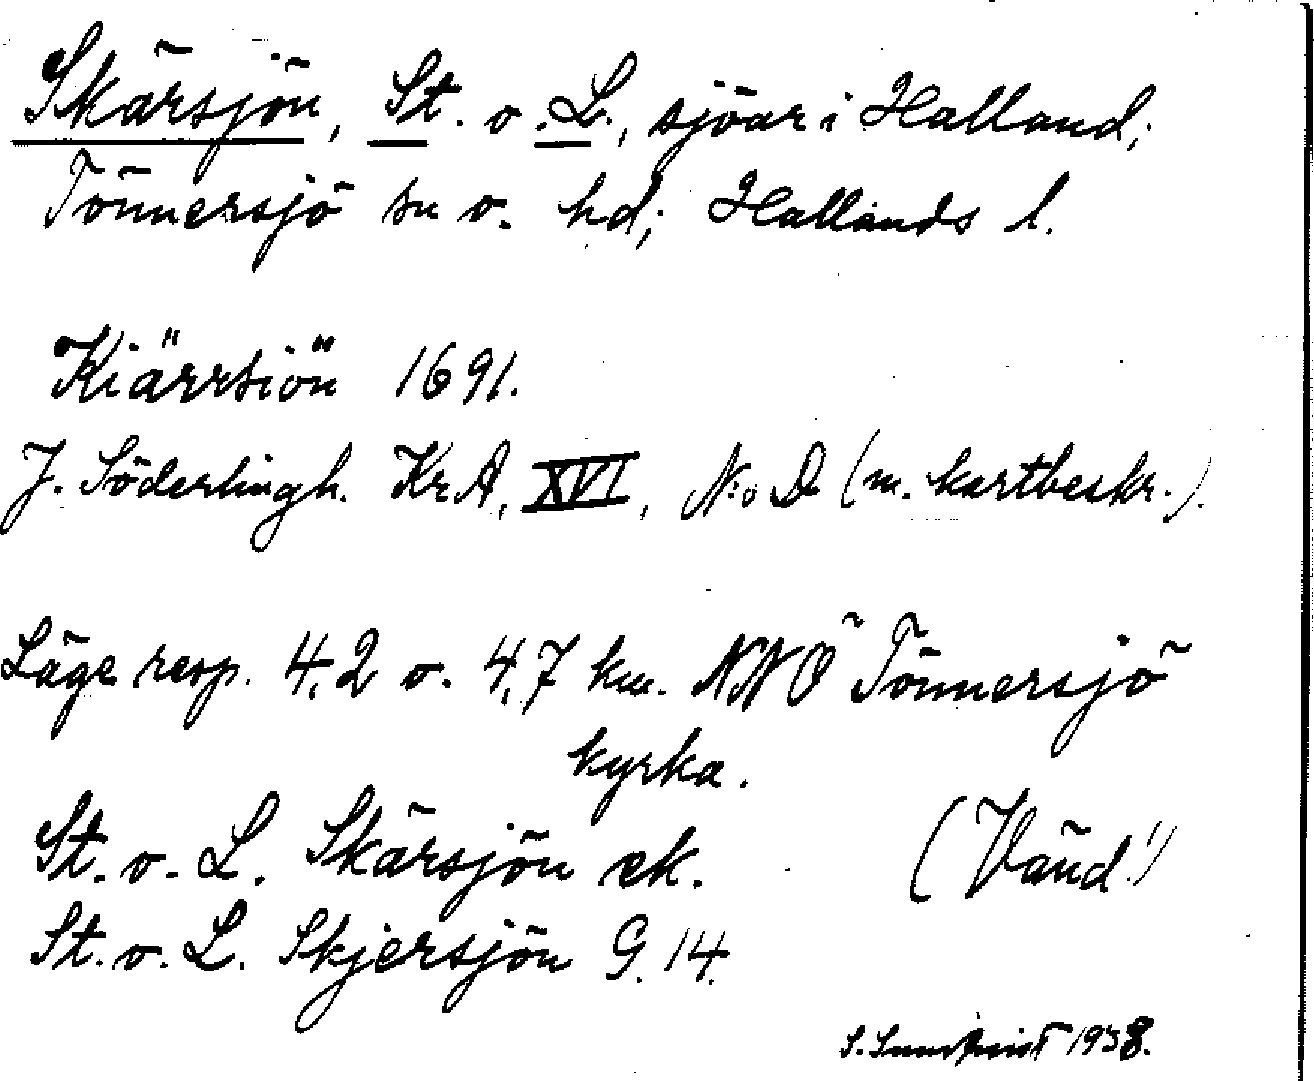 Skärsjön, St. o. L., sjöar i Halland;
Tönnersjö sn o. hd; Hallands l.
Kiärrsiön 1691.
J. Söderlingh. Kr.A, XVI, N:o D (m. kartbeskr.).
Läge resp. 4,2 o. 4,7 km. NNÖ Tönnersjö
kyrka.
St. o. L. Skärsjön ek.
(Vänd!)
St. o. L. Skjersjön G. 14.
S. 1938.